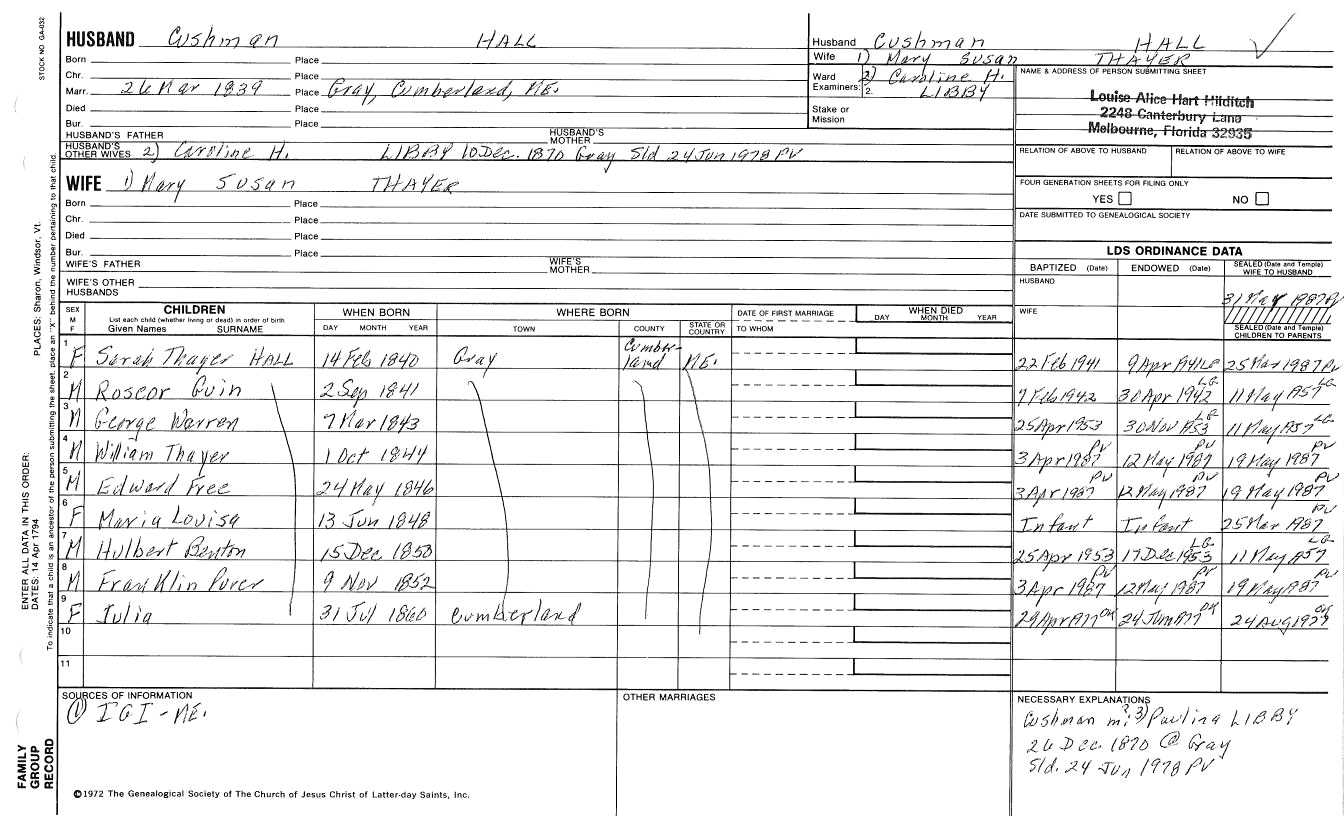 STOCK NO. GA-032
PLACES: Sharon, Windsor, Vt.
ENTER ALL DATA IN THIS ORDER:
DATES: 14 Apr 1794
To indicate that a child is an ancestor of the person submitting the sheet, place an "X" behind the number pertaining to that child.
FAMILY GROUP RECORD
HUSBAND Cushman HALL
Born Place
Chr. Place
Marr. 26 Mar 1839 Place Gray, Cumberland, ME.
Died Place
Bur. Place
HUSBAND'S FATHER HUSBAND'S MOTHER
HUSBAND'S OTHER WIVES 2) Caroline H. LIBBY 10 Dec. 1870 Gray Sld 24 Jun 1978 PV
WIFE 1) Mary Susan THAYER
Born Place
Chr. Place
Died Place
Bur. Place
WIFE'S FATHER WIFE'S MOTHER
WIFE'S OTHER HUSBANDS
Husband Cushman HALL
Wife 1) Mary Susan THAYER
Ward 2) Caroline H.
Examiners: 2. LIBBY
Stake or Mission
NAME & ADDRESS OF PERSON SUBMITTING SHEET
Louise Alice Hart Hilditch
2248 Canterbury Lane
Melbourne, Florida 32935
RELATION OF ABOVE TO HUSBAND RELATION OF ABOVE TO WIFE
FOUR GENERATION SHEETS FOR FILING ONLY
YES NO
DATE SUBMITTED TO GENEALOGICAL SOCIETY
LDS ORDINANCE DATA
BAPTIZED (Date) ENDOWED (Date) SEALED (Date and Temple) WIFE TO HUSBAND
HUSBAND
31 May 1987 PV
WIFE
SEALED (Date and Temple) CHILDREN TO PARENTS
SEX M F CHILDREN List each child (whether living or dead) in order of birth Given Names SURNAME WHEN BORN DAY MONTH YEAR WHERE BORN TOWN COUNTY STATE OR COUNTRY DATE OF FIRST MARRIAGE TO WHOM WHEN DIED DAY MONTH YEAR
1 F Sarah Thayer HALL 14 Feb 1840 Gray Cumber-land ME. 22 Feb 1941 9 Apr 1941 LG 25 Mar 1987 PV
2 M Roscor Guin 2 Sep 1841 7 Feb 1942 30 Apr 1942 LG 11 May 1957 LG
3 M George Warren 7 Mar 1843 25 Apr 1953 30 Nov 1953 LG 11 May 1957 LG
4 M William Thayer 1 Oct 1844 3 Apr 1987 PV 12 May 1987 PV 19 May 1987 PV
5 M Edward Free 24 May 1846 3 Apr 1987 PV 12 May 1987 PV 19 May 1987 PV
6 F Maria Louisa 13 Jun 1848 Infant Infant 25 Mar 1987 PV
7 M Hulbert Benton 15 Dec 1850 25 Apr 1953 17 Dec 1953 LG 11 May 1957 LG
8 M Franklin Porer 9 Nov 1852 3 Apr 1987 PV 12 May 1987 PV 19 May 1987 PV
9 F Julia 31 Jul 1860 Cumberland 29 Apr 1977 OK 24 Jun 1977 OK 24 Aug 1977 OK
10
11
SOURCES OF INFORMATION
① IGI - ME.
OTHER MARRIAGES
NECESSARY EXPLANATIONS
Cushman m. ? 3) Paulina LIBBY
26 Dec. 1870 @ Gray
Sld. 24 Jun 1978 PV
©1972 The Genealogical Society of The Church of Jesus Christ of Latter-day Saints, Inc.